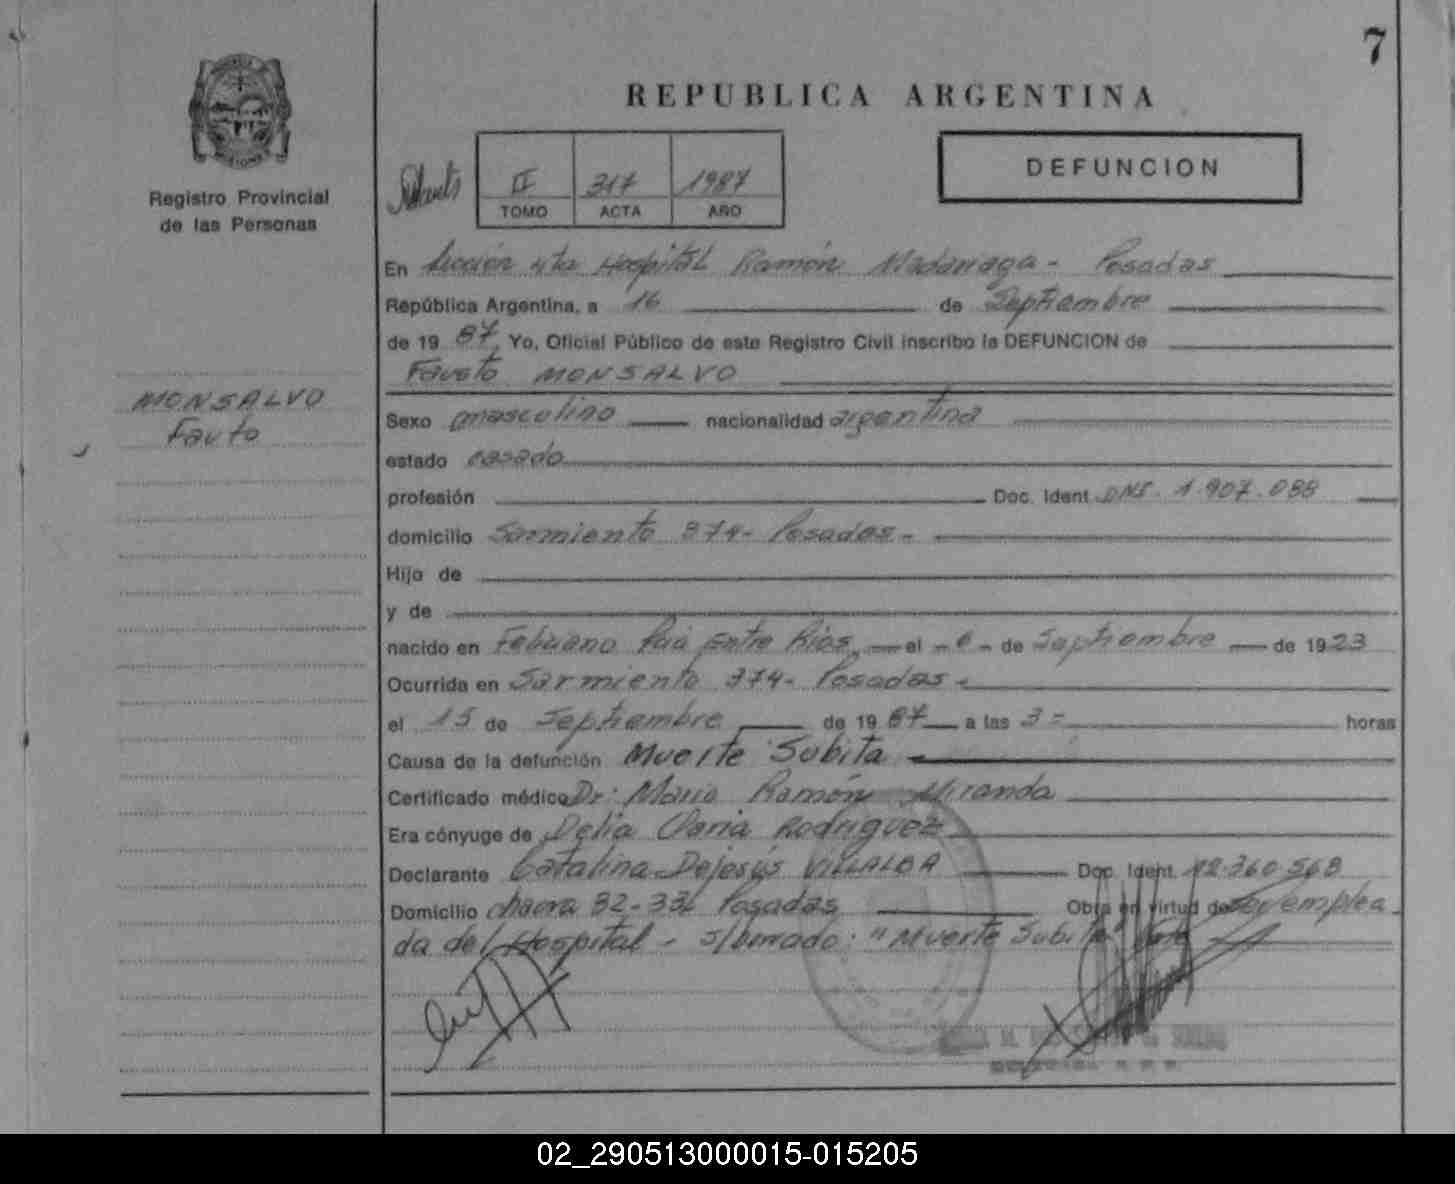 7
REPUBLICA ARGENTINA
Registro Provincial
de las Personas
II 317 1987
TOMO ACTA AÑO
DEFUNCION
En Sección 4ta Hospital Ramón Madariaga - Posadas
República Argentina, a 16 de Septiembre
de 19 87 Yo, Oficial Público de este Registro Civil inscribo la DEFUNCION de
Fausto MONSALVO
MONSALVO
Fausto
Sexo masculino nacionalidad argentina
estado casado
profesión Doc. Ident. DNI. 1.907.088
domicilio Sarmiento 374 - Posadas -
Hijo de
y de
nacido en Entre Ríos, el - 6 - de Septiembre de 1923
Ocurrida en Sarmiento 374 - Posadas -
el 15 de Septiembre de 19 87 a las 3 = horas
Causa de la defunción Muerte Subita
Certificado médico Dr: Mario Ramón Miranda
Era cónyuge de Delia Rodriguez
Declarante Catalina Dejesús VILLALBA Doc. Ident. 12.360.568
Domicilio chacra 32-33 Posadas Obra en virtud de ser emplea
da del Hospital - s/borrado: "Muerte Subita"
02_290513000015-015205